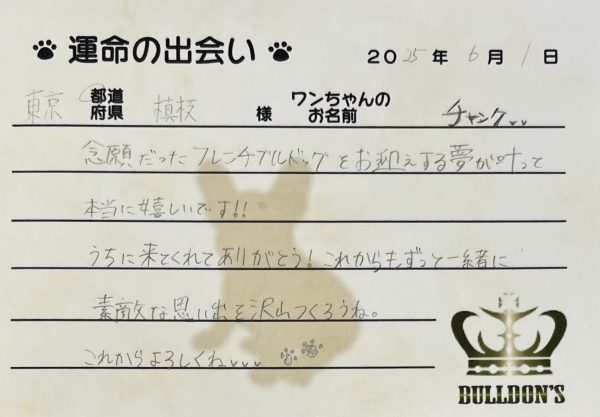 運命の出会い
2025年 6月 1日
東京 都道府県 槙枝 様 ワンちゃんのお名前 チャンク
念願だったフレンチブルドッグをお迎えする夢が叶って
本当に嬉しいです!!
うちに来てくれてありがとう!これからもずっと一緒に
素敵な思い出を沢山つくろうね。
これからよろしくね
BULLDON'S